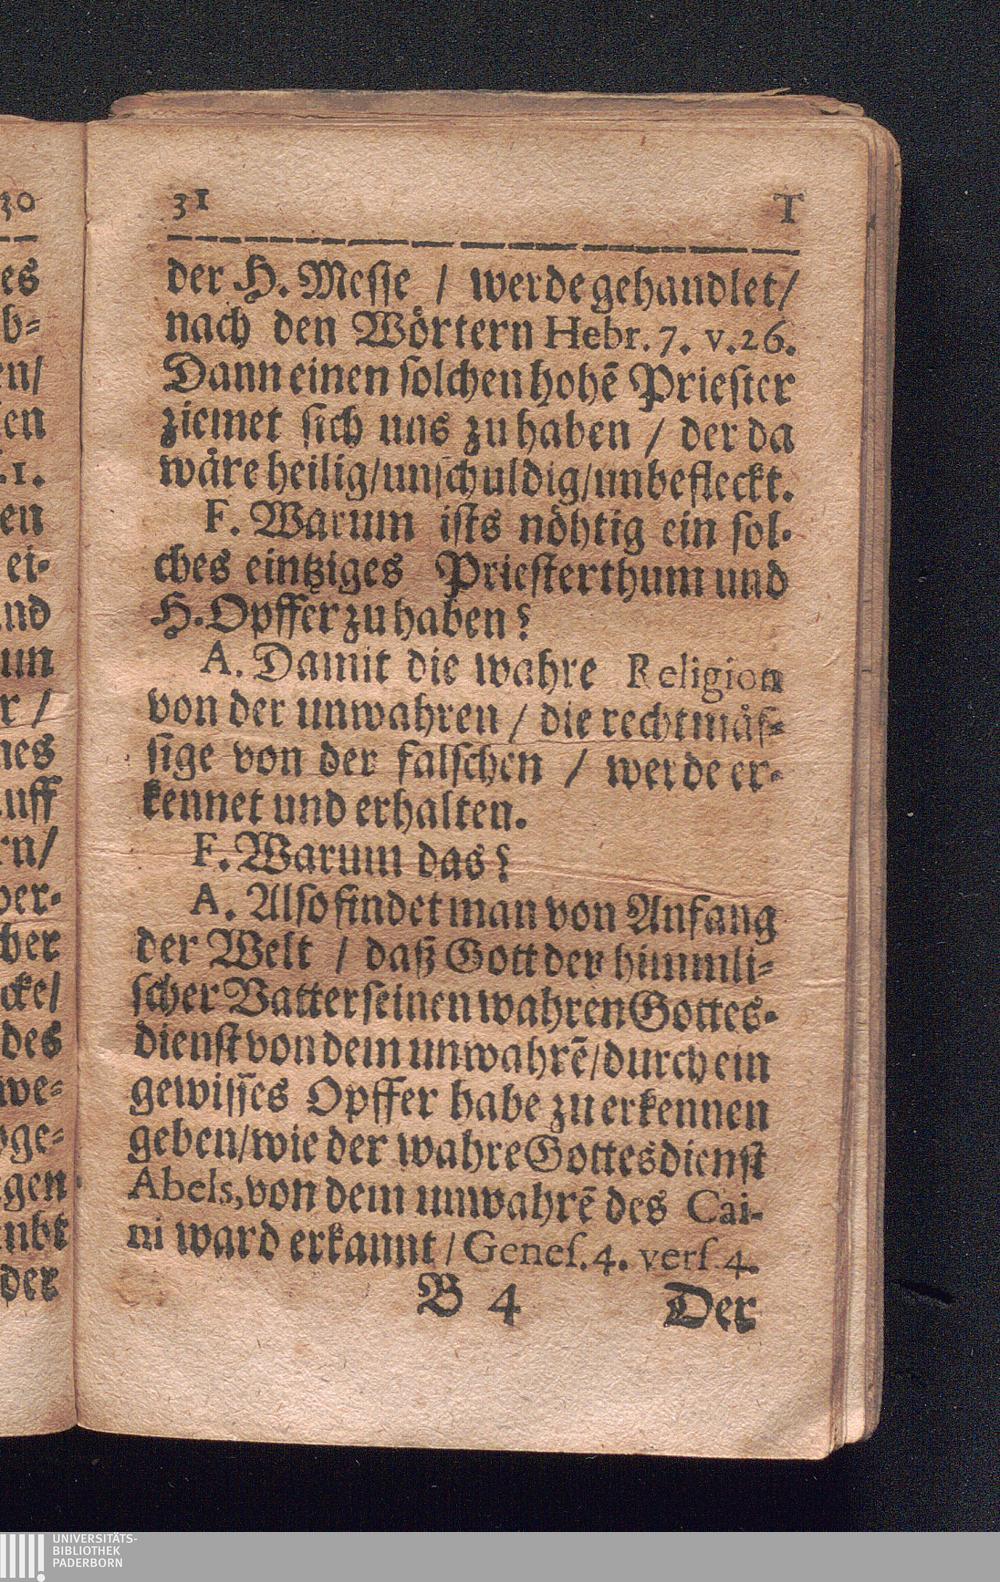 30
es
b⸗
en/
en
1.
en
ei⸗
nd
un
r /
nes
uff
rn/
per⸗
her
cke/
des
we⸗
ge⸗
gen
ubt
der
31 T
der H. Messe / werde gehandlet/
nach den Wörtern Hebr. 7. v. 26.
Dann einen solchen hohē Priester
ziemet sich uns zu haben / der da
wäre heilig/unschuldig/unbefleckt.
F. Warum ists nöhtig ein sol⸗
ches eintziges Priesterthum und
H. Opffer zu haben?
A. Damit die wahre Religion
von der unwahren / die rechtmäs⸗
sige von der falschen / werde er⸗
kennet und erhalten.
F. Warum das?
A. Also findet man von Anfang
der Welt / daß Gott der himmli⸗
scher Vatter seinen wahren Gottes⸗
dienst von dem unwahrē/durch ein
gewisses Opffer habe zu erkennen
geben/wie der wahre Gottesdienst
Abels, von dem unwahrē des Cai-
ni ward erkannt / Genes. 4. vers. 4.
B 4 Der
UNIVERSITÄTS-
BIBLIOTHEK
PADERBORN